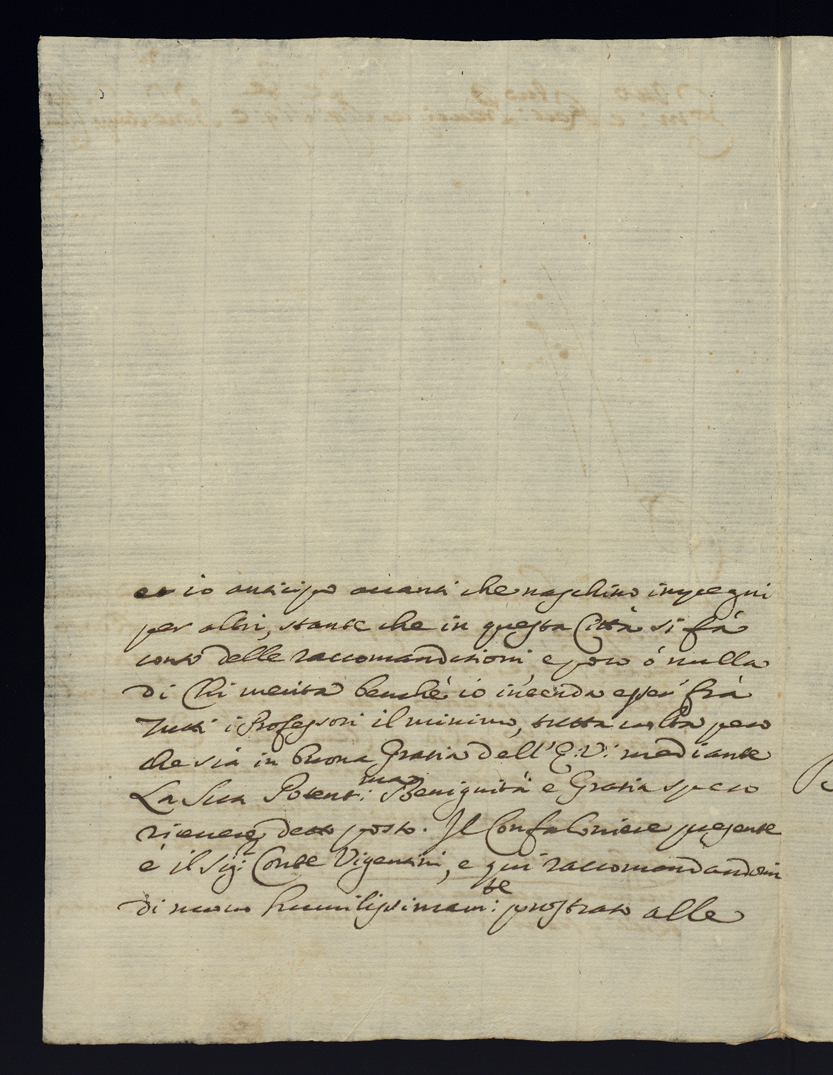 et io anticipo auanti che naschino impegni
per altri, stante che in questa Città si fà
conto delle raccomandationi, e poco ó nulla
di Chi merita benché io in esser frà
Tutti i Professori il minimo, tutta uolta pero
che sià in buona Gratia dell' E: V: mediante
La Sua Potenti:ma Benignità e Gratia spero
riceuere detto posto. Il Confaloniere presente
é il Sig: Conte Vigentini, e qui raccomandandomi
di nuouo humilissimam:te prostrato alle